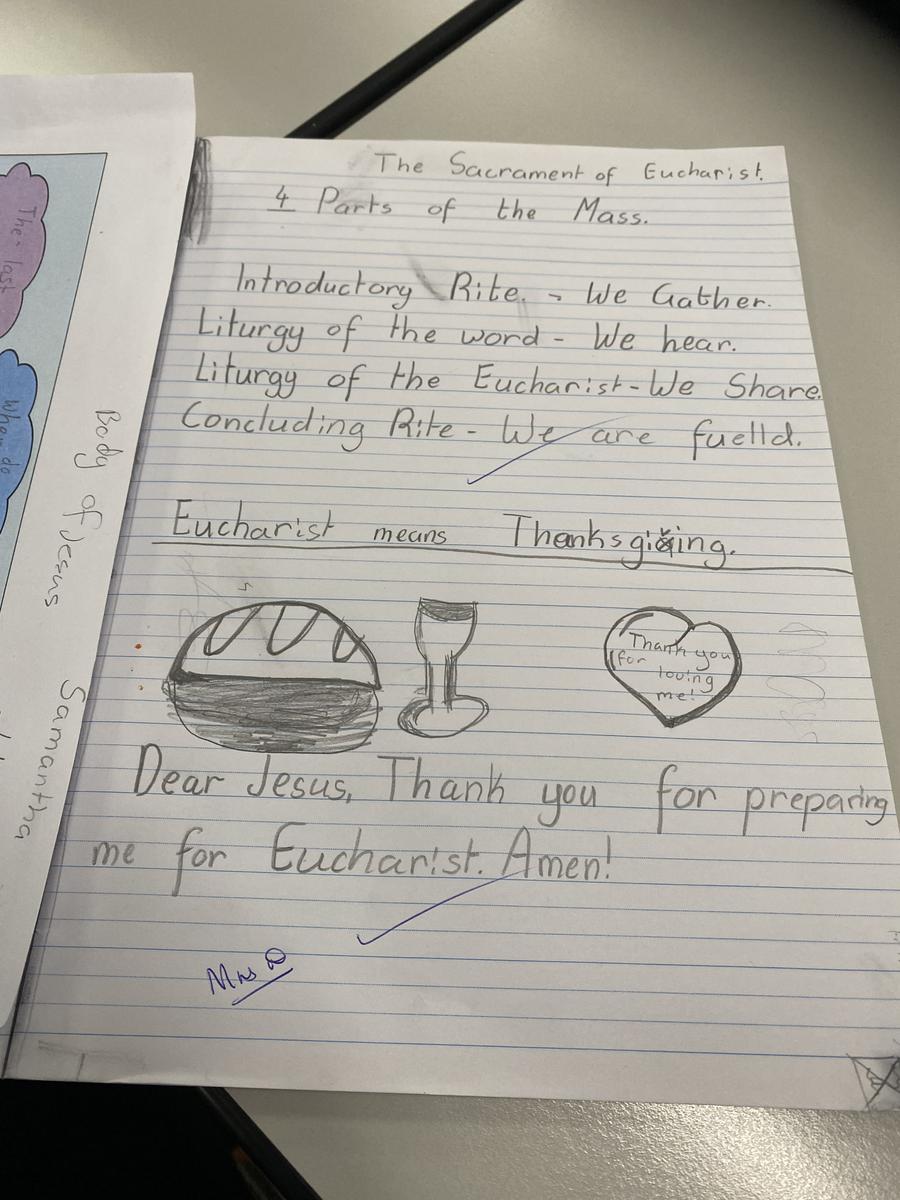 The Sacrament of Eucharist.
4 Parts of the Mass.
Introductory Rite. - We Gather.
Liturgy of the word - We hear.
Liturgy of the Eucharist - We Share.
Concluding Rite - We are fuelld.
Eucharist means Thanksgiving.
Thank you
for loving
me!
Dear Jesus, Thank you for preparing
me for Eucharist. Amen!
Mrs D
The last
When do
Body of Jesus
Samantha